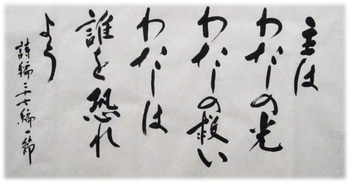 主は
わたしの光
わたしの救い
わたしは
誰を恐れ
よう
詩編二十七編一節